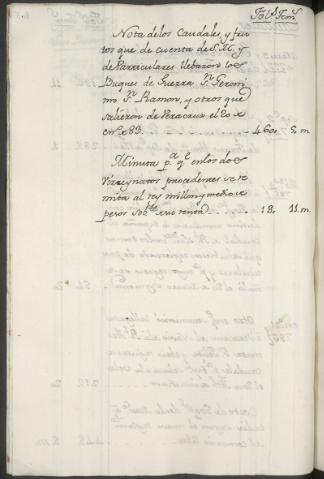 Fols. Toms.
Nota de los Caudales, y fru-
tos que de cuenta de S.M. y
de Particulares llebaron los
Buques de Guerra Sn. Geroni-
mo Sn. Ramon, y otros que
salieron de Veracruz el 20 x
en 89. - 460, 5, m
Minuta pa. qe. en los dos
Virreynatos y procedentes se re-
mita al rey millon y medio x
pesos 18, 11 m